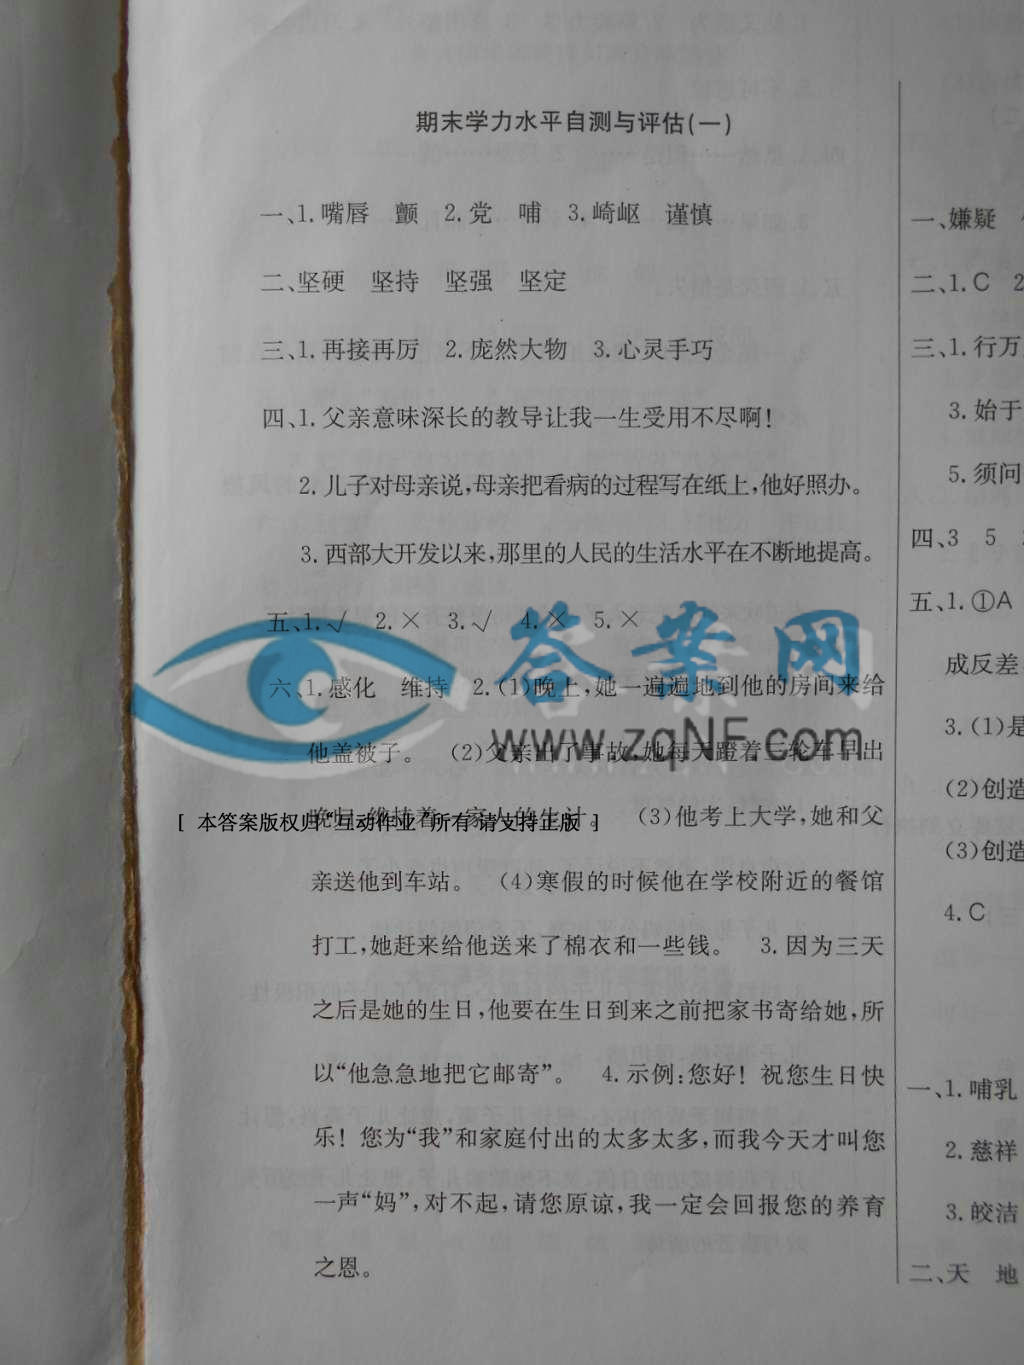 期末学力水平自测与评估(一)
一、1.嘴唇 颤 2.党 哺 3.崎岖 谨慎
二、坚硬 坚持 坚强 坚定
三、1.再接再厉 2.庞然大物 3.心灵手巧
四、1.父亲意味深长的教导让我一生受用不尽啊!
2.儿子对母亲说,母亲把看病的过程写在纸上,他好照办。
3.西部大开发以来,那里的人民的生活水平在不断地提高。
五、1.√ 2.× 3.√ 4.× 5.×
六、1.感化 维持 2.(1)晚上,她一遍遍地到他的房间来给
他盖被子。 (2)父亲出了事故,她每天蹬着三轮车早出
晚归,维持着一家人的生计。 (3)他考上大学,她和父
亲送他到车站。 (4)寒假的时候他在学校附近的餐馆
打工,她赶来给他送来了棉衣和一些钱。 3.因为三天
之后是她的生日,他要在生日到来之前把家书寄给她,所
以“他急急地把它邮寄”。 4.示例:您好! 祝您生日快
乐! 您为“我”和家庭付出的太多太多,而我今天才叫您
一声“妈”,对不起,请您原谅,我一定会回报您的养育
之恩。
答案网
www.zqNF.com
[ 本答案版权归“互动作业”所有 请支持正版 ]
一、嫌疑
二、1.C 2
三、1.行万
3.始于
5.须问
四、3 5
五、1.①A
成反差
3.(1)是
(2)创造
(3)创造
4.C
一、1.哺乳
2.慈祥
3.皎洁
二、天 地